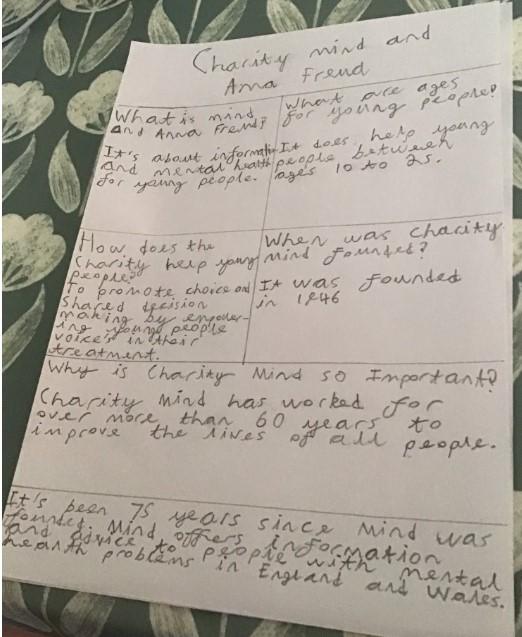 Charity mind and
Anna Freud
What is mind
and Anna Freud?
It's about informati
and mental health
for young people.
What are ages
for young people?
It does help young
people between
ages 10 to 25.
How does the
Charity help young
people?
To promote choice and
shared decision
making by empower-
ing young people
voice's in their
treatment.
When was charity
mind founded?
It was founded
in 1946
Why is Charity Mind so Important?
Charity Mind has worked for
over more than 60 years to
improve the lives of all people.
It's been 75 years since Mind was
founded. Mind offers information
and advice to people with mental
health problems in England and Wales.